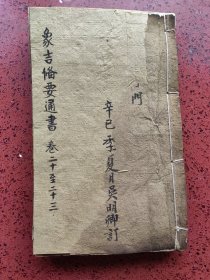 門
辛巳季夏月吳明卿訂
象吉俻要通書 卷二十至二十三